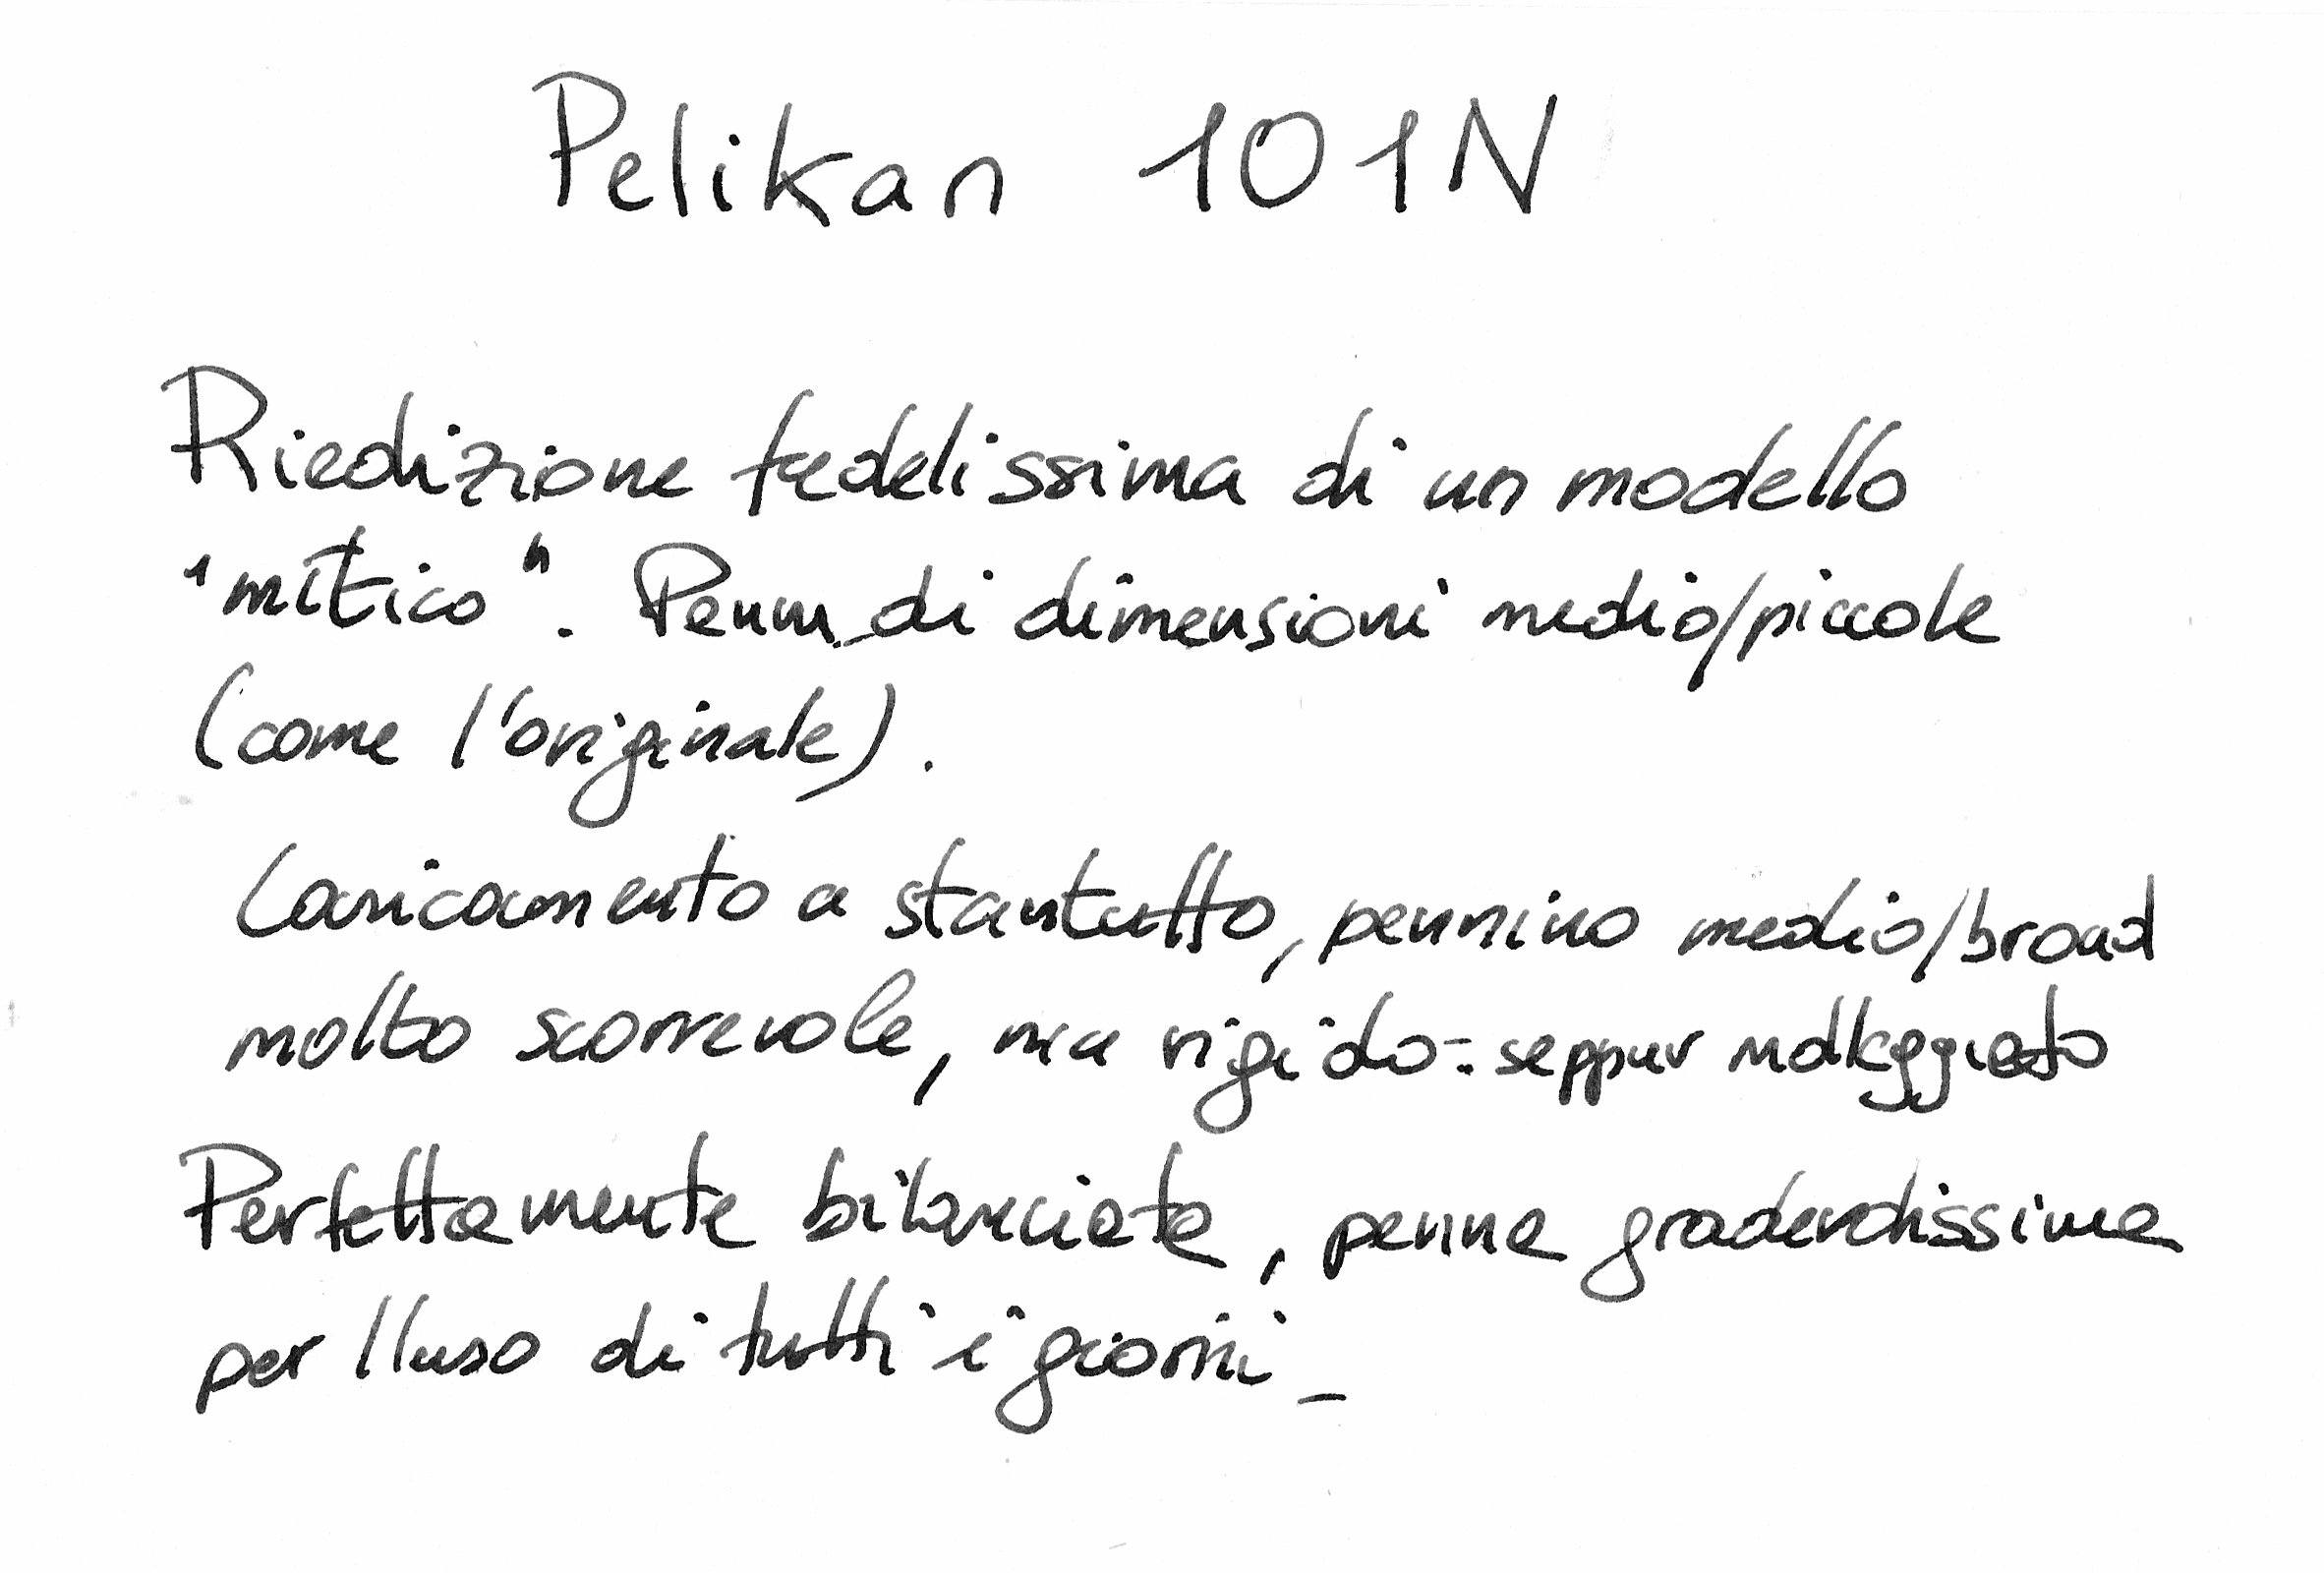 Pelikan 101N
Riedizione fedelissima di un modello
"mitico". Penna di dimensioni medio/piccole
(come l'originale).
Caricamento a stantuffo, pennino medio/broad
molto scorrevole, ma rigido - seppur molleggiato
Perfettamente bilanciata, penna gradevolissima
per l'uso di tutti i giorni -